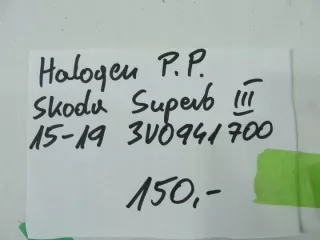 Halogen P.P.
Skoda Superb III
15-19 3V0941700
150,-